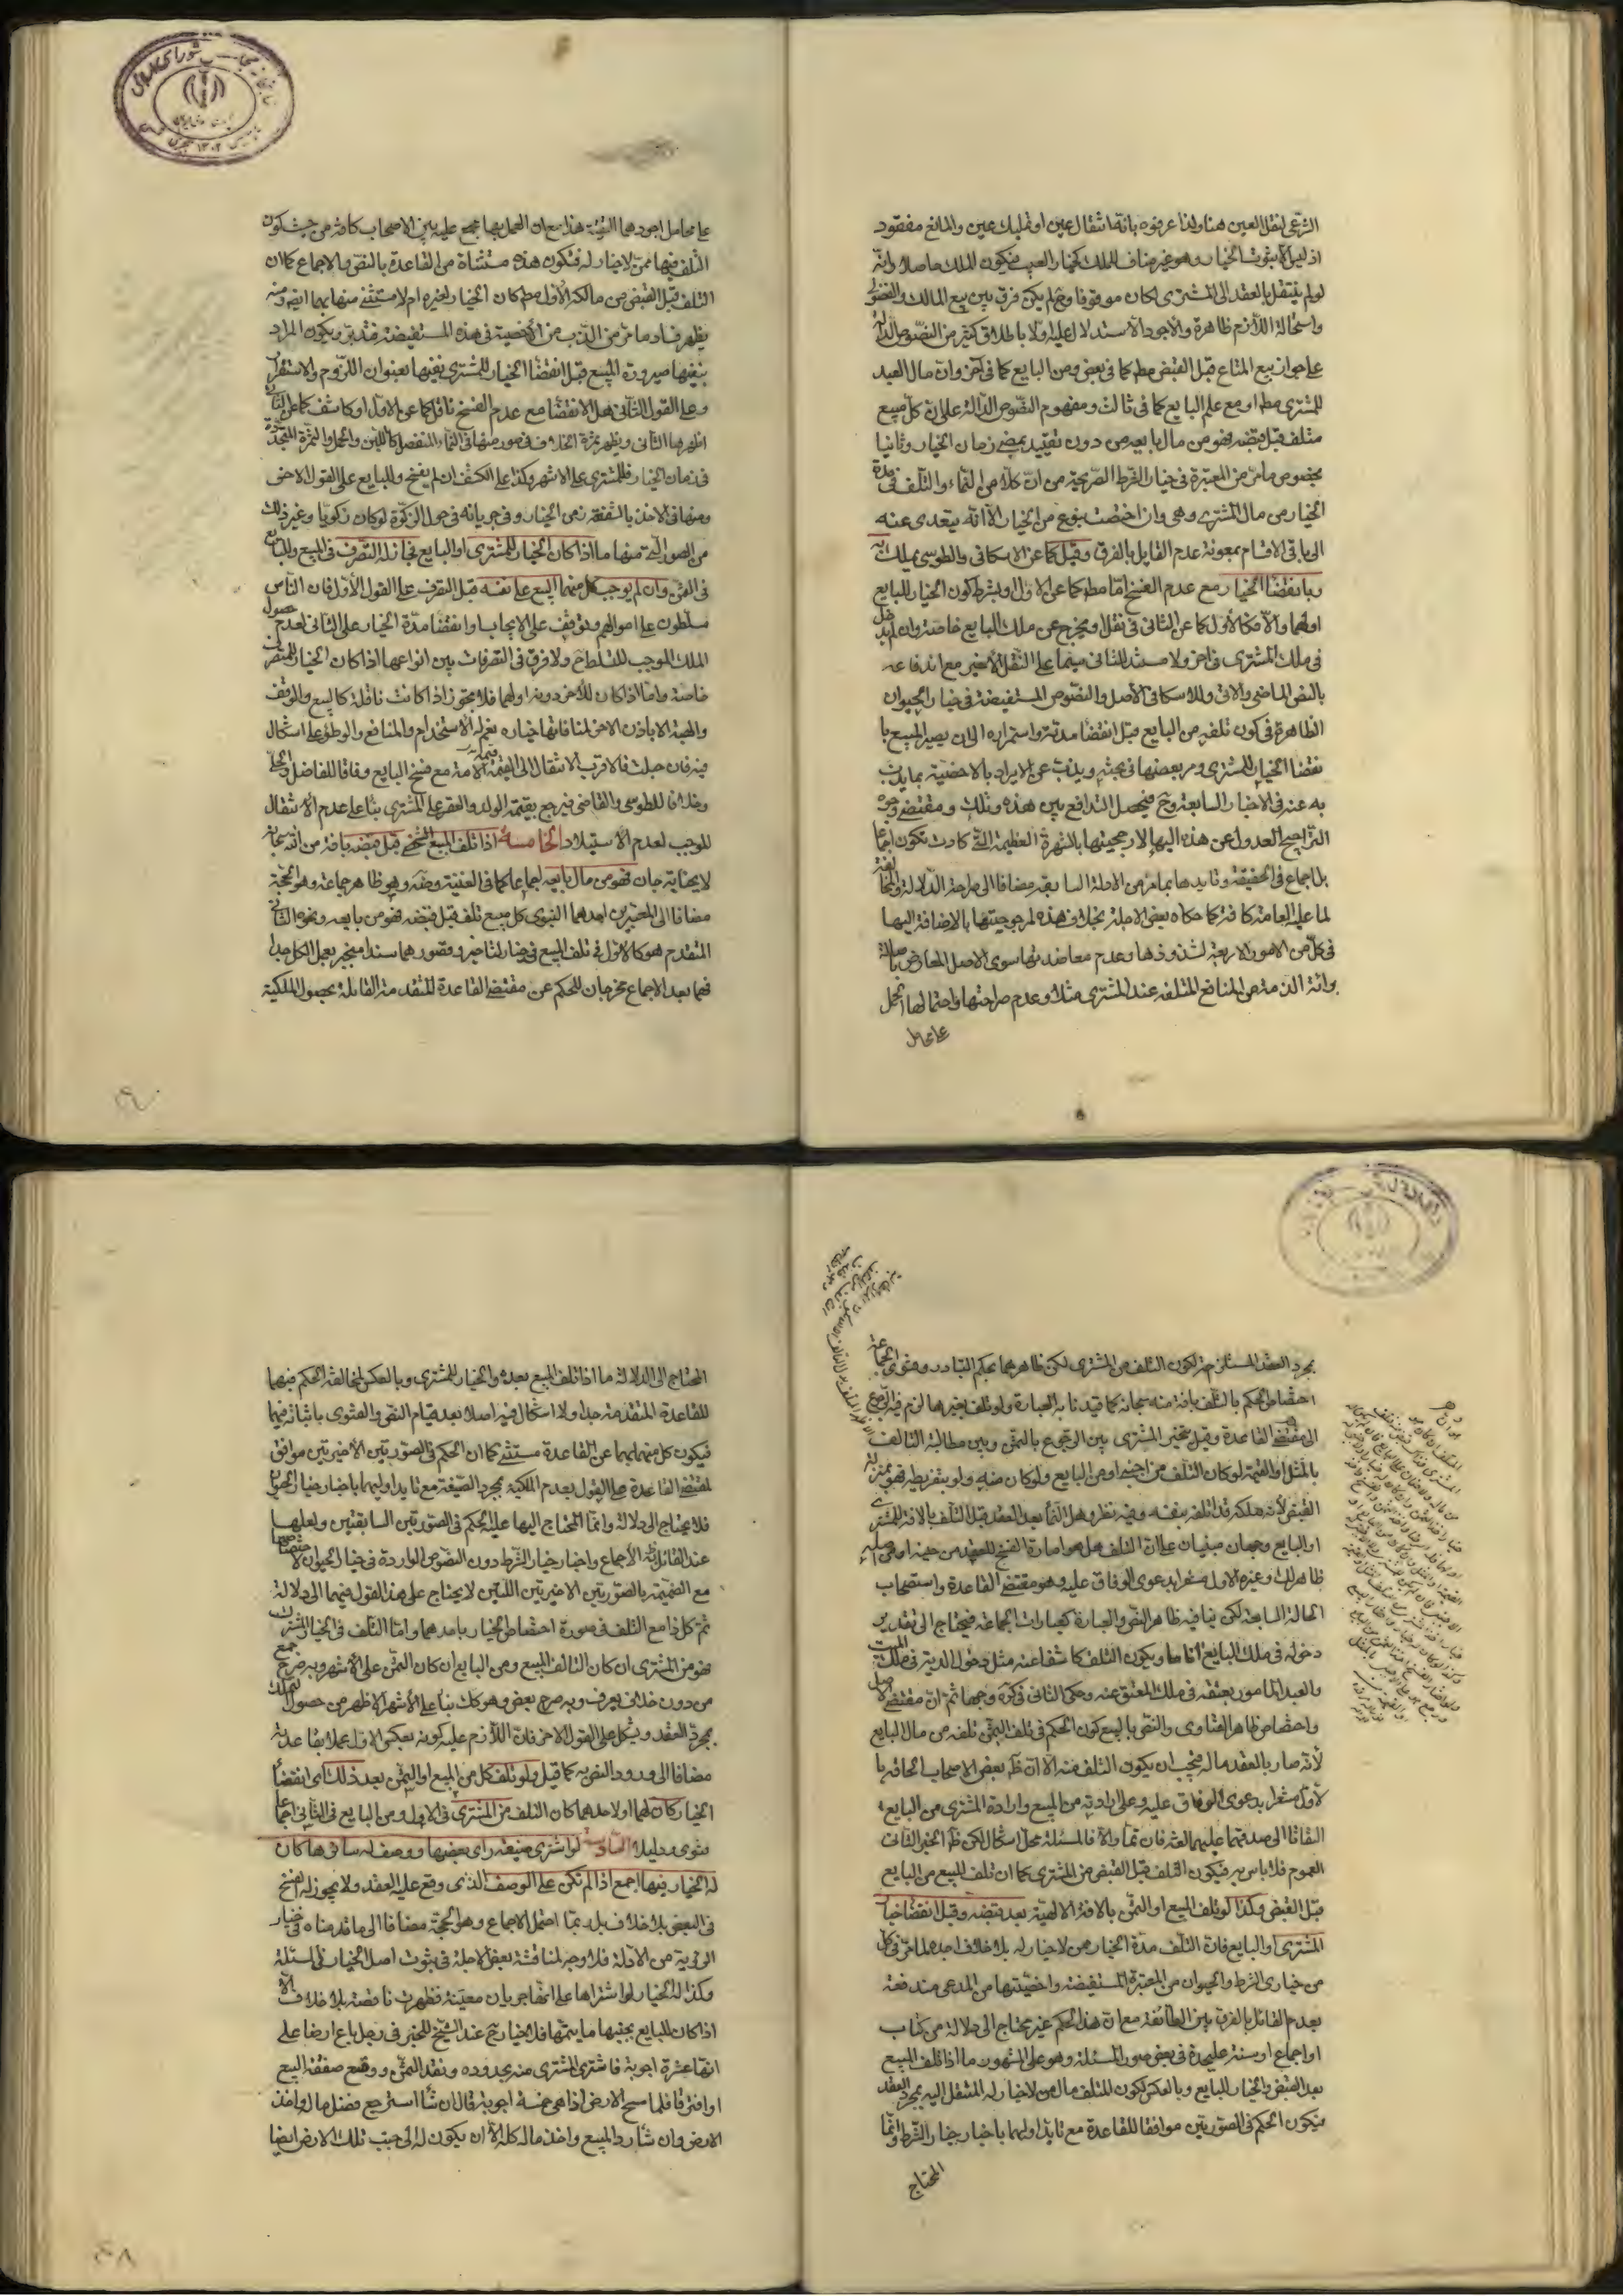 الشرعي لنقل العين هنا ولذا عرفوه بانه انتقال عين او تمليك عين والمانع مفقود
اذ ليس الا ثبوت الخيار وهو غير مناف للملك كخيار العيب فيكون الملك حاصلا وانه
لو لم ينتقل بالعقد الى المشتري لكان موقوفا وح لم يكن فرق بين بيع المالك والفضولي
واستحالة اللازم ظاهرة والاجود الاستدلال عليه اولا باطلاق كثير من النصوص الدالة
على جواز بيع المتاع قبل القبض مطر كما في بعض ومن البايع كما في آخر وان مال العبد
للمشتري مطر او مع علم البايع كما في ثالث ومفهوم النصوص الدالة على ان كل مبيع
متلف قبل قبضه فهو من مال بايعه من دون تقييد بمضي زمان الخيار وثانيا
بخصوص ما مر من المعتبرة في خيار الشرط الصريحة من ان كلا من النماء والتلف في مدة
الخيار من مال المشتري وهي وان اختصت بنوع من الخيار الا انه يتعدى عنه
الى باقي الاقسام بمعونة عدم القايل بالفرق وقيل كما عن الاسكافي والطوسي يملك به
وبانقضا الخيار مع عدم الفسخ اما مطر كما عن الاول او بشرط كون الخيار للبايع
او لهما والا فكالاول كما عن الثاني في نقل او يخرج عن ملك البايع خاصة وان لم يدخل
في ملك المشتري في اخر ولا مستند للثاني سيما على النقل الاخير مع اندفاعه
بالنص الماضي والاتي وللاسكافي الاصل والنصوص المستفيضة في خيار الحيوان
الظاهرة في كون تلفه من البايع قبل انقضا مدته واستمراره الى ان يصير المبيع با
نقضا الخيار للمشتري ومر بعضها في بحثه ويذب عن الايراد بالاخصية بما يذب
به عنه في الاخبار السابعة وح فيحصل التدافع بين هذه وتلك ومقتضى وجوه
التراجيح العدول عن هذه اليها لارجحيتها بالشهرة العظيمة التي كادت تكون اجماعا
بل اجماع في الحقيقة وتايدها بما مر من الادلة السابقة مضافا الى صراحة الدلالة والمخالفة
لما عليه العامة كافة كما حكاه بعض الاجلة بخلاف هذه لمرجوحيتها بالاضافة اليها
في كل من الامور الاربعة لشذوذها وعدم معاضد لها سوى الاصل المعارض باصالة
برائة الذمة من المنافع المتلفة عند المشتري مثلا وعدم صراحتها واحتمالها الحمل
على محامل
على محامل اجودها التقية هذا مع ان العمل بها مجمع عليه بين الاصحاب كافة من حيث كون
التلف فيها ممن لا خيار له فتكون هذه مستثناة من القاعدة بالنص والاجماع كما ان
التلف قبل القبض من مالكه الاول مطر كان الخيار له او لغيره ام لا مستثنى منها بهما ايضا ومنه
يظهر فساد ما مر من الذب من الاخصية في هذه المستفيضة فتدبر ويكون المراد
بنفيها صيرورة المبيع قبل انقضا الخيار للمشتري نفيها بعنوان اللزوم والاستقرار
وعلى القول الثاني هل الانقضا مع عدم الفسخ ناقل كما عن الاول او كاشف كما عن الثاني
اظهرهما الثاني ويظهر ثمرة الخلاف في صور منها في النماء المنفصل كاللبن والحمل والثمرة المتجددة
في زمان الخيار فللمشتري على الاشهر وكذا على الكشف ان لم يفسخ وللبايع على القول الاخر
ومنها في الاخذ بالشفعة زمن الخيار وفي جريانه في حول الزكوة لو كان زكويا وغير ذلك
من الصور التي منها ما اذا كان الخيار للمشتري او البايع فجائز له التصرف في المبيع وللبايع
في الثمن وان لم يوجب كل منهما البيع على نفسه قبل التصرف على القول الاول فان الناس
مسلطون على اموالهم ويتوقف على الايجاب او انقضا مدة الخيار على الثاني لعدم حصول
الملك الموجب للتسلط ح ولا فرق في التصرفات بين انواعها اذا كان الخيار للمتصرف
خاصة واما اذا كان للاخر دونه او لهما فلا يجوز اذا كانت ناقلة كالبيع والوقف
والهبة الا باذن الاخر لمنافاتها خياره نعم له الاستخدام والمنافع والوطؤ على اشكال
فيه فان حبلت فالاقرب الانتقال الى القيمة مع فسخ البايع وفاقا للفاضل والحلي
وخلافا للطوسي والقاضي فيرجع بقيمة الولد والعقر على المشتري بناء على عدم الانتقال
الموجب لعدم الاستيلاد الخامسة اذا تلف المبيع الشخصي قبل قبضه بافة من الله سبحانه
لا يجناية جان فهو من مال بايعه اجماعا كما في الغنية وضه وهو ظاهر جماعة وهو الحجة
مضافا الى المعتبرين احدهما النبوي كل مبيع تلف قبل قبضه فهو من بايعه ونحوه الثاني
المتقدم هو كالاول في تلف المبيع في خيار التاخير وقصورهما سندا منجبر بعمل الكل جدا
فهما بعد الاجماع مخرجان للحكم عن مقتضى القاعدة المتقدمة القائلة بحصول الملكية
بمجرد العقد المستلزمة لكون التلف من المشتري لكن ظاهرهما بحكم التبادر وفتوى الجماعة
اختصاص الحكم بالتلف بافة منه سبحانه كما قيدنا به العبارة ولو تلف بغيرها لزم فيه الرجوع
الى مقتضى القاعدة وقيل بتخير المشتري بين الرجوع بالثمن وبين مطالبة التالف
بالمثل او القيمة لو كان التلف من اجنبي او من البايع ولو كان منه ولو بتفريطه فهو بمنزلة
القبض لانه ملكه قد اتلفه بنفسه وفيه نظر وهل النماء بعد العقد قبل التلف بالافة للمشتري
او للبايع وجهان مبنيان على ان التلف هل هو امارة الفسخ للعقد من حينه او من اصله
ظاهر لك وغيره الاول مشعرا بدعوى الوفاق عليه وهو مقتضى القاعدة واستصحاب
الحالة السابعة لكن ينافيه ظاهر النص والعبارة كعبارات الجماعة فيحتاج الى تقدير
دخوله في ملك البايع انا ما ويكون التلف كاشفا عنه مثل دخول الدية في ملك الميت
والعبد المامور بعتقه في ملك المعتق عنه وحكى الثاني في كره وجها ثم ان مقتضى الاصل
واختصاص ظاهر الفتاوى والنص بالمبيع كون الحكم في تلف الثمن تلفه من مال البايع
لانه صار بالعقد ماله فيجب ان يكون التلف منه الا ان ظ بعض الاصحاب الحاقه با
لاول مشعرا بدعوى الوفاق عليه وعلى ارادته من المبيع وارادة المشتري من البايع
التفاتا الى صدقهما عليهما لغة فان تم والا فالمسئلة محل اشكال لكن ظ الخبر الثاني
العموم فلا باس به فيكون التلف قبل القبض من المشتري كما ان تلف المبيع من البايع
قبل القبض وكذا لو تلف المبيع او الثمن بالافة الالهية بعد قبضه وقبل انقضا خيار
المشتري او البايع فان التلف مدة الخيار من لا خيار له بلا خلاف اجده لما مر في كل
من خياري الشرط والحيوان من المعتبرة المستفيضة واخصيتها من المدعى مندفعة
بعدم القائل بالفرق بين الطائفة مع ان هذا الحكم غير محتاج الى دلالة من كتاب
او اجماع او سنة عليحدة في بعض صور المسئلة وهو على المشهور ما اذا تلف المبيع
بعد القبض والخيار للبايع وبالعكس لكون المتلف مال من لا خيار له المنتقل اليه بمجرد العقد
فيكون الحكم في الصورتين موافقا للقاعدة مع تايد اولهما باخبار خيار الشرط وانما
المحتاج
المحتاج الى الدلالة ما اذا تلف المبيع بعده والخيار للمشتري وبالعكس لمخالفة الحكم فيهما
للقاعدة المتقدمة جدا ولا اشكال فيه اصلا بعد قيام النص والفتوى باثباته فيهما
فيكون كل منهما بهما عن القاعدة مستثنى كما ان الحكم في الصورتين الاخيرتين موافق
لمقتضى القاعدة على القول بعدم الملكية بمجرد الصيغة مع تايد اوليهما باخبار خيار الحيوان
فلا يحتاج الى دلالة وانما المحتاج اليها عليه الحكم في الصورتين السابقتين ولعلها
عند القائل به الاجماع واخبار خيار الشرط دون النصوص الواردة في خيار الحيوان لاختصاصها
مع الضميمة بالصورتين الاخيرتين اللتين لا يحتاج على هذا القول فيهما الى دلالة
ثم كل ذا مع التلف في صورة اختصاص الخيار باحدهما واما التلف في الخيار المشترك
فهو من المشتري ان كان التالف المبيع ومن البايع ان كان الثمن على الاشهر وبه صرح جمع
من دون خلاف يعرف وبه صرح بعض وهو كك بناء على الاشهر الاظهر من حصول الملك
بمجرد العقد ويشكل على القول الاخر فان اللازم عليه كونه بعكس الاول عملا بقاعدته
مضافا الى ورود النص به كما قيل ولو تلف كل من المبيع او الثمن بعد ذلك اي انقضا
الخيار كان لهما او لاحدهما كان التلف من المشتري في الاول ومن البايع في الثاني اجماعا
فتوى ودليلا السادسة لو اشترى ضيعة راى بعضها ووصف له سائرها كان
له الخيار فيها اجمع اذا لم تكن على الوصف الذي وقع عليه العقد ولا يجوز له الفسخ
في البعض بلا خلاف بل ربما احتمل الاجماع وهو الحجة مضافا الى ما قدمناه في خيار
الرؤية من الادلة فلا وجه لمناقشة بعض الاجلة في ثبوت اصل الخيار في المسئلة
وكذا له الخيار لو اشتراها على انها جربان معينة فظهرت ناقصة بلا خلاف الا
اذا كان للبايع بجنبها ما يتمها فلا خيار ح عند الشيخ للخبر في رجل باع ارضا على
انها عشرة اجربة فاشترى المشتري منه بحدوده ونقد الثمن ووقع صفقة البيع
وافترقا فلما مسح الارض اذا هي خمسة اجربة قال ان شا استرجع فضل ماله واخذ
الارض وان شا رد المبيع واخذ ماله كله الا ان يكون له الى جنب تلك الارض ايضا